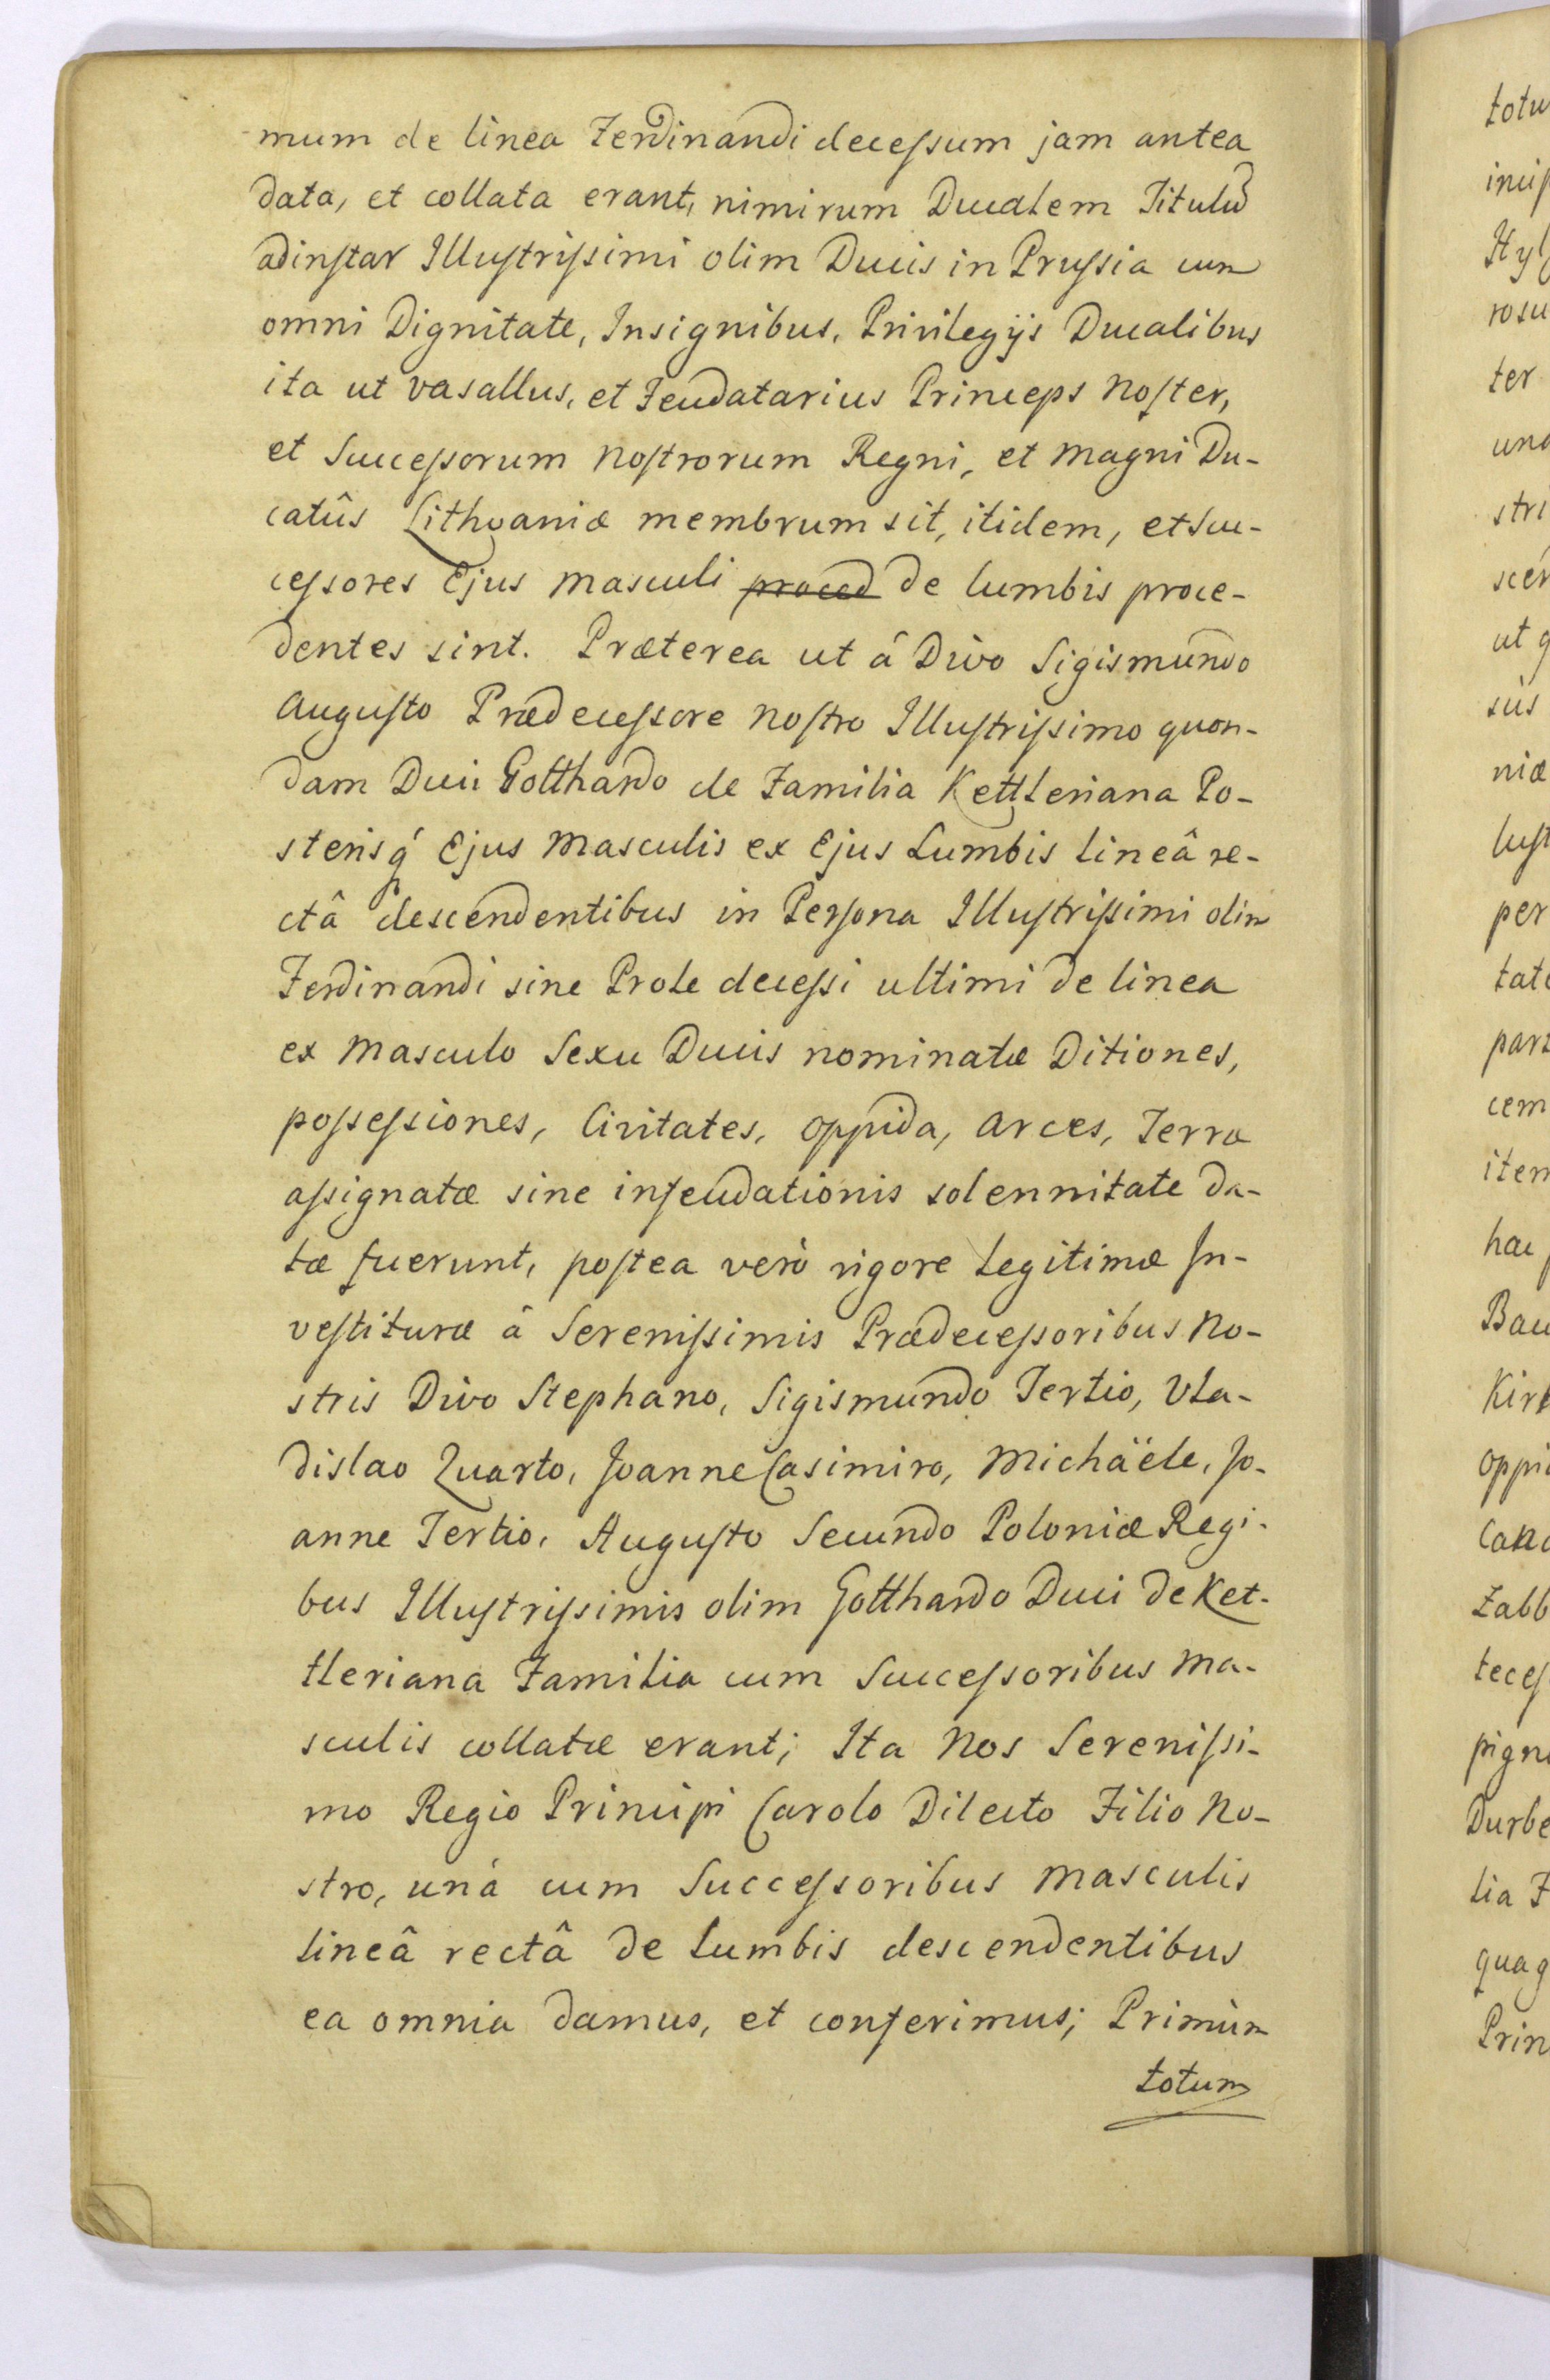 -mum de linea Ferdinandi decessum jam antea
data, et collata erant, nimirum Ducalem Titulũ
adinstar Illustrissimi olim Ducis in Prussia cum
omni Dignitate, Insignibus, Privilegijs Ducalibus
ita ut vasallus, et Feudatarius Princeps Noster,
et Successorum Nostrorum Regni, et Magni Du-
catûs Lithvaniæ membrum sit, itidem, et Suc-
cessores Ejus Masculi proced de lumbis proce-
dentes sint. Præterea ut á Divo Sigismundo
Augusto Prædecessore Nostro Illustrissimo quon-
dam Duci Gotthardo de Familia Kettleriana Po-
sterisq́ Ejus Masculis ex Ejus Lumbis lineâ re-
ctâ descendentibus in Persona Illustrissimi olim
Ferdinandi sine Prole decessi ultimi de linea
ex Masculo Sexu Ducis nominatæ Ditiones,
possessiones, Civitates, Oppida, Arces, Terræ
assignatæ sine infeudationis solennitate da-
tæ fuerunt, postea verò vigore Legitimæ In-
vestituræ â Serenissimis Prædecessoribus No-
stris Divo Stephano, Sigismundo Tertio, Vla-
dislao Quarto, Joanne Casimiro, Michäele, Jo-
anne Tertio, Augusto Secundo Poloniæ Regi-
bus Illustrissimis olim Gotthardo Duci de Ket-
tleriana Familia cum Successoribus Ma-
sculis collatæ erant; Ita Nos Serenissi-
mo Regio Principi Carolo Dilecto Filio No-
stro, unà cum Successoribus Masculis
lineâ rectâ de Lumbis descendentibus
ea omnia damus, et conferimus; Primùm
totum
totu
ros
ter
una
stri
ut q
niæ
lust
per
tate
cem
item
Bau
Kirk
oppi
Zabb
teces
pign
Durbe
lia F
Prin